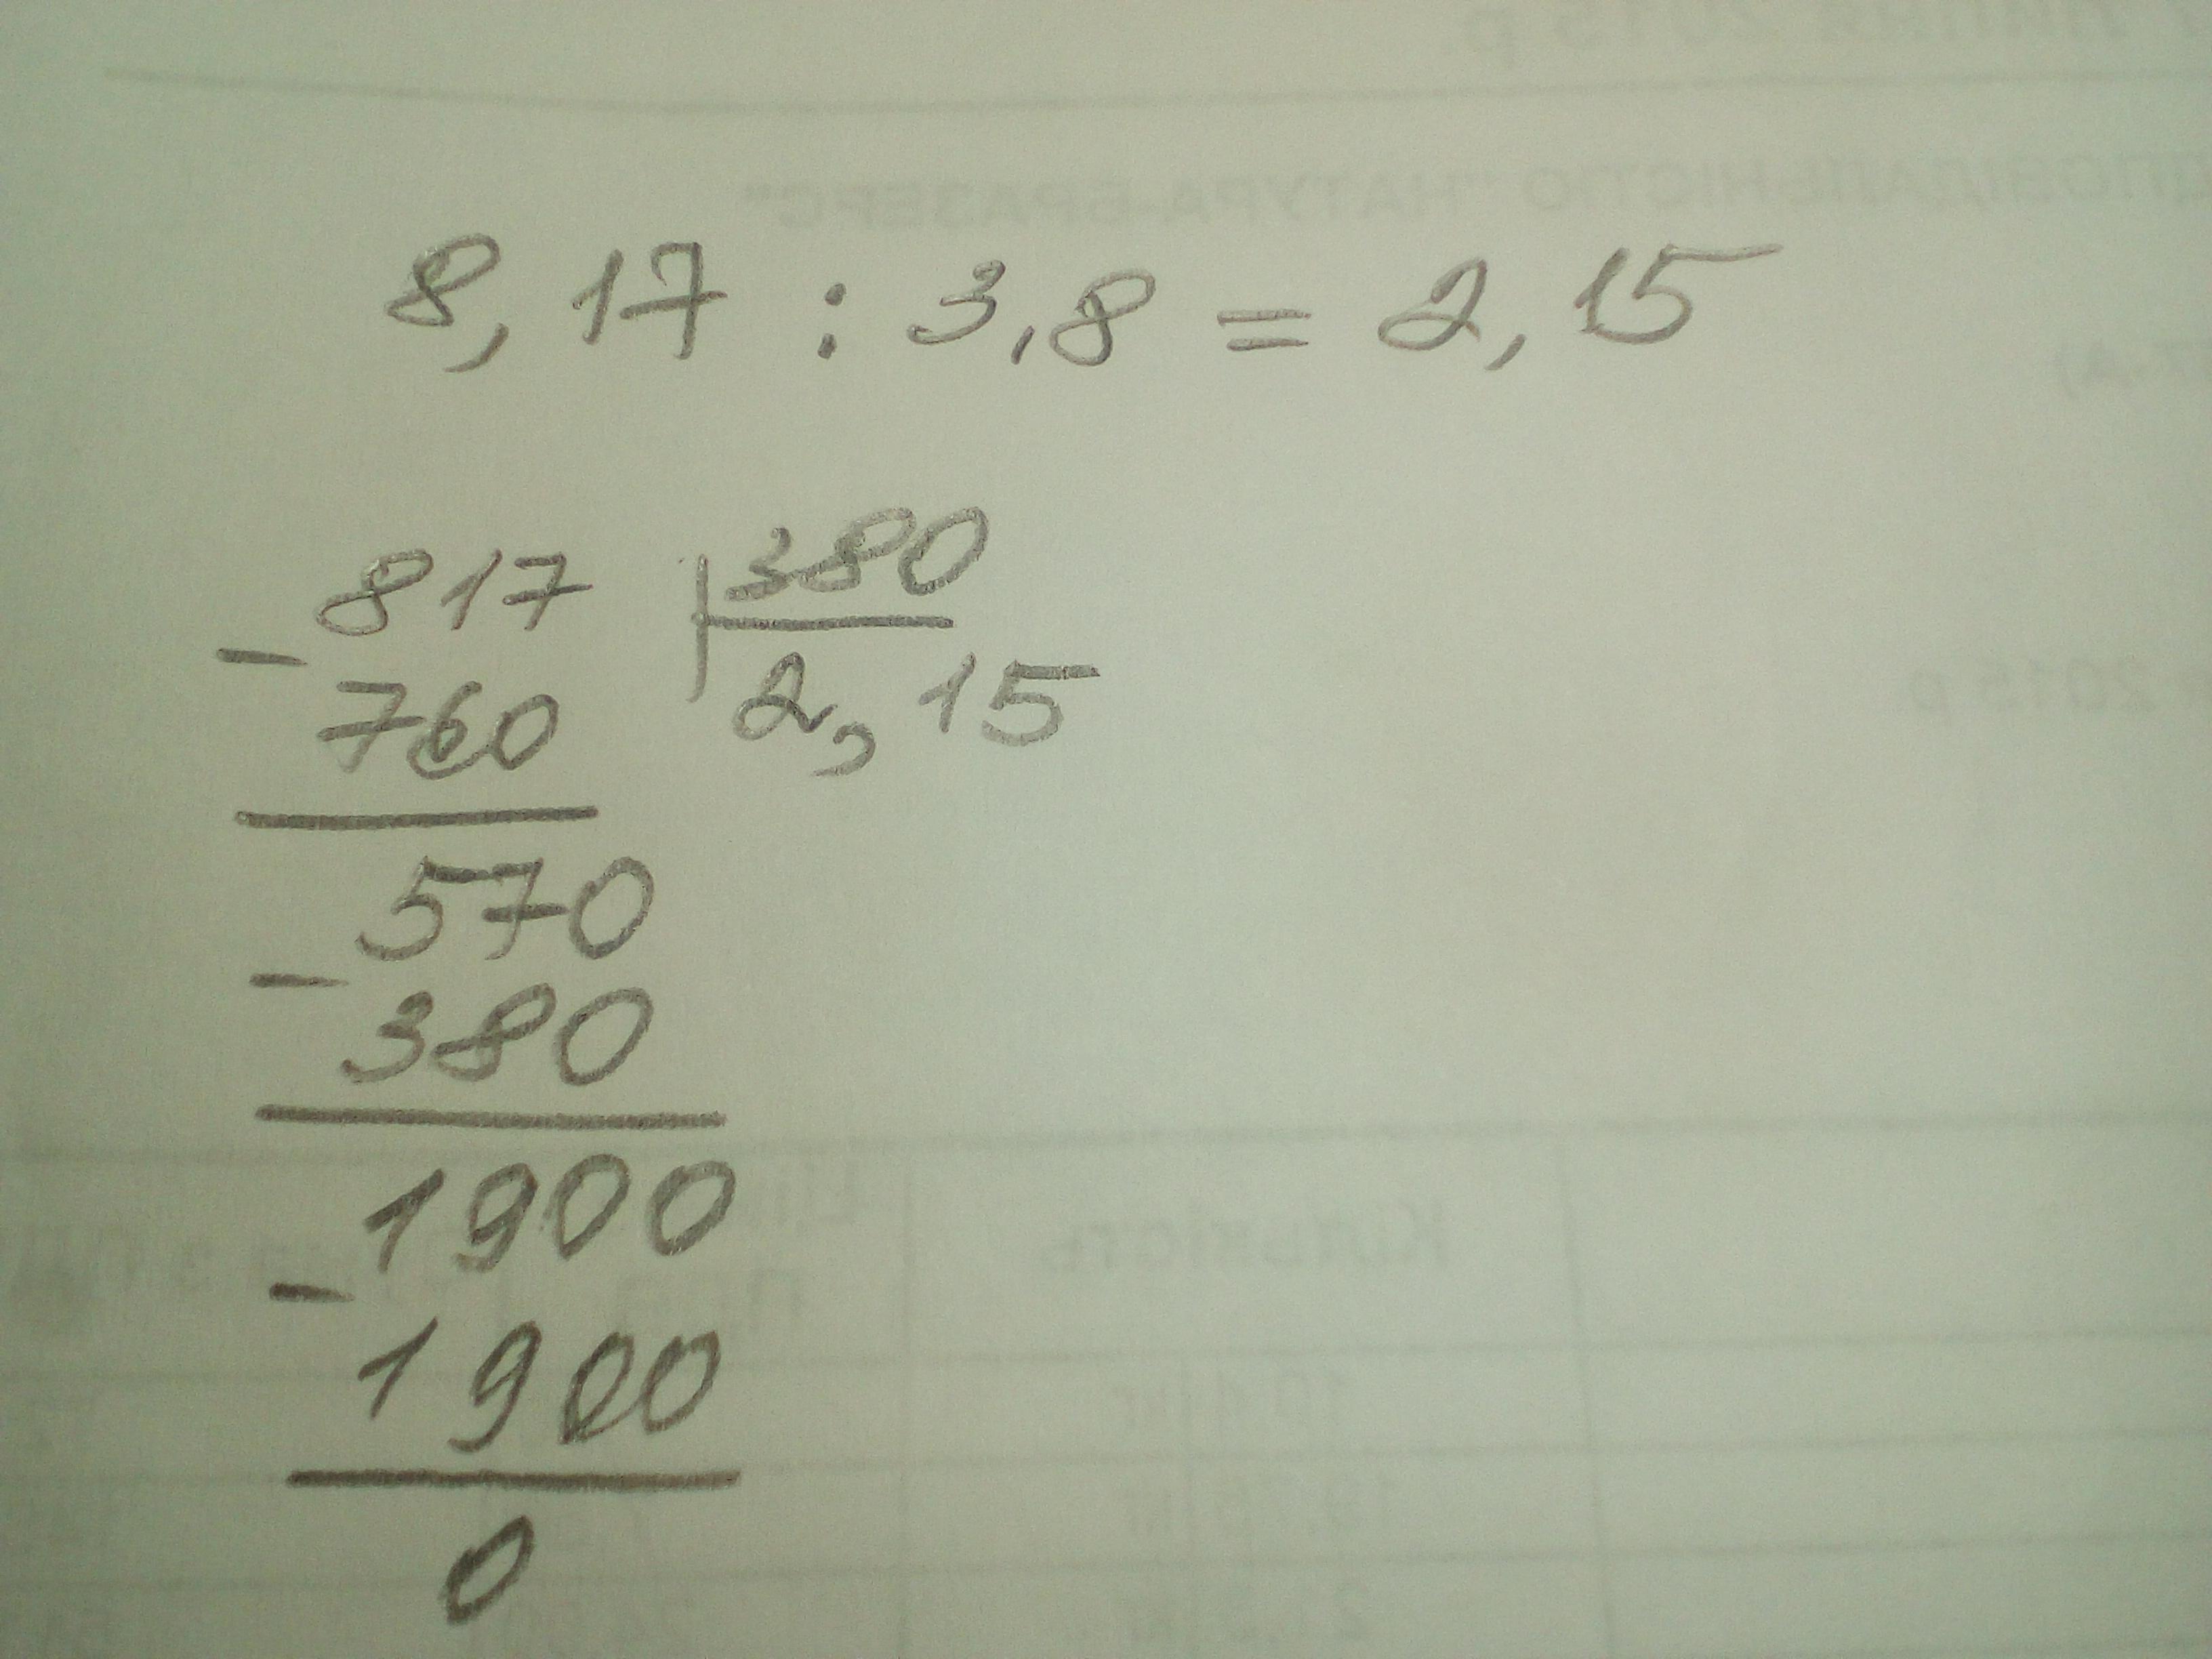 8,17 : 3,8 = 2,15
817 380
- 2,15
760
570
-
380
1900
-
1900
0